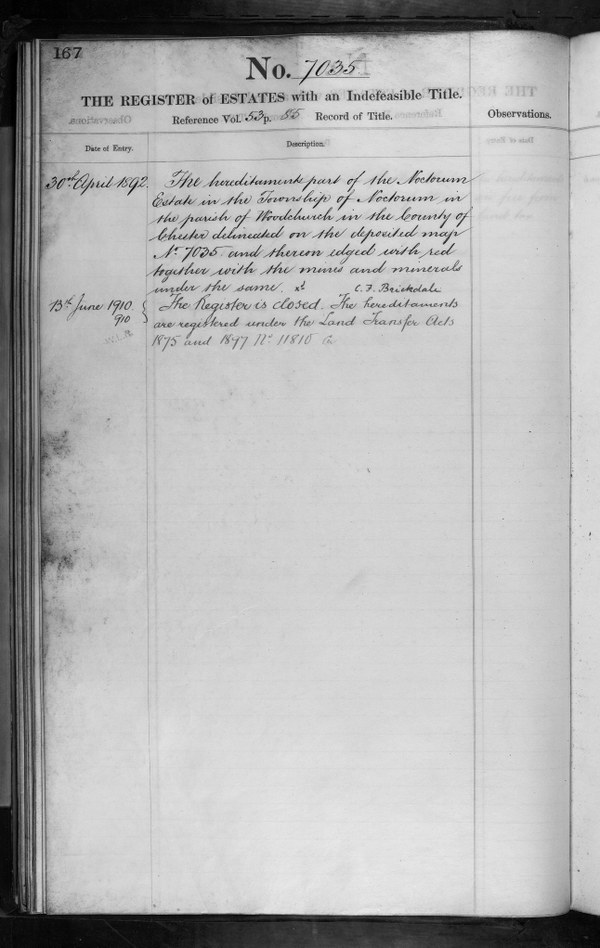 167
No. 7035
THE REGISTER of ESTATES with an Indefeasible Title.
Reference Vol. 53 p. 85 Record of Title.
Observations.
Date of Entry.
Description.
30th April 1892.
The hereditaments part of the Noctorum
Estate in the Township of Noctorum in
the parish of Woodchurch in the County of
Chester delineated on the deposited map
No 7035 and thereon edged with red
together with the mines and minerals
under the same. xd C. F. Brickdale
13th June 1910.
910
The Register is closed. The hereditaments
are registered under the Land Transfer Acts
1875 and 1897 No 11816